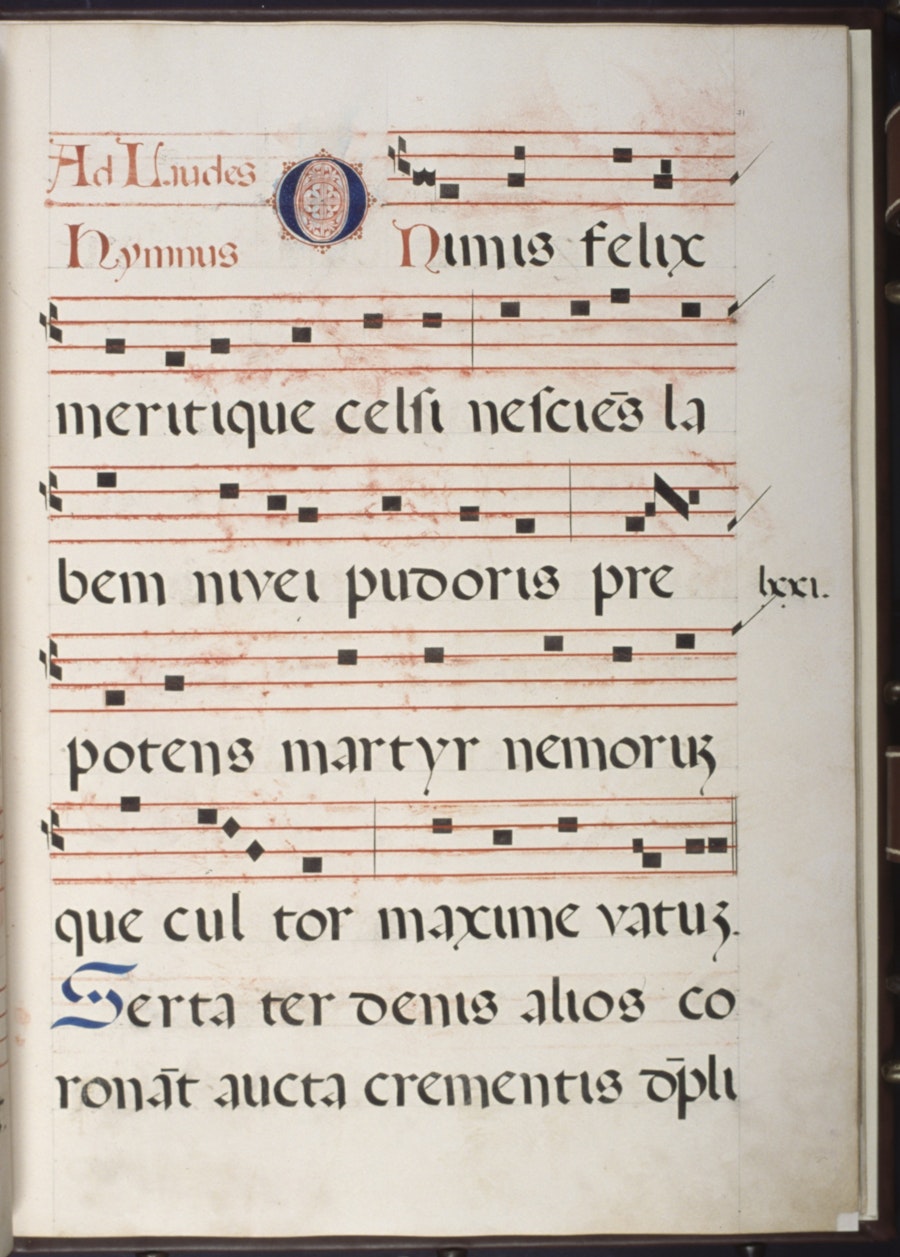 Ad Laudes
Hymnus
O Nimis felix
meritique celſi neſcie̅s la
bem nivei pudoris pre
lxxi.
potens martyr nemoruꝫ
que cul tor maxime vatuꝫ.
Serta ter denis alios co
rona̅t aucta crementis dp̅li